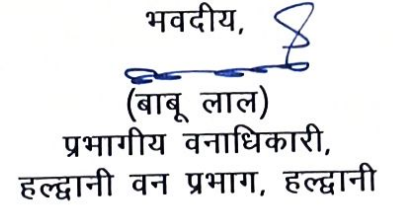 भवदीय,
(बाबू लाल)
प्रभागीय वनाधिकारी,
हल्द्वानी वन प्रभाग, हल्द्वानी